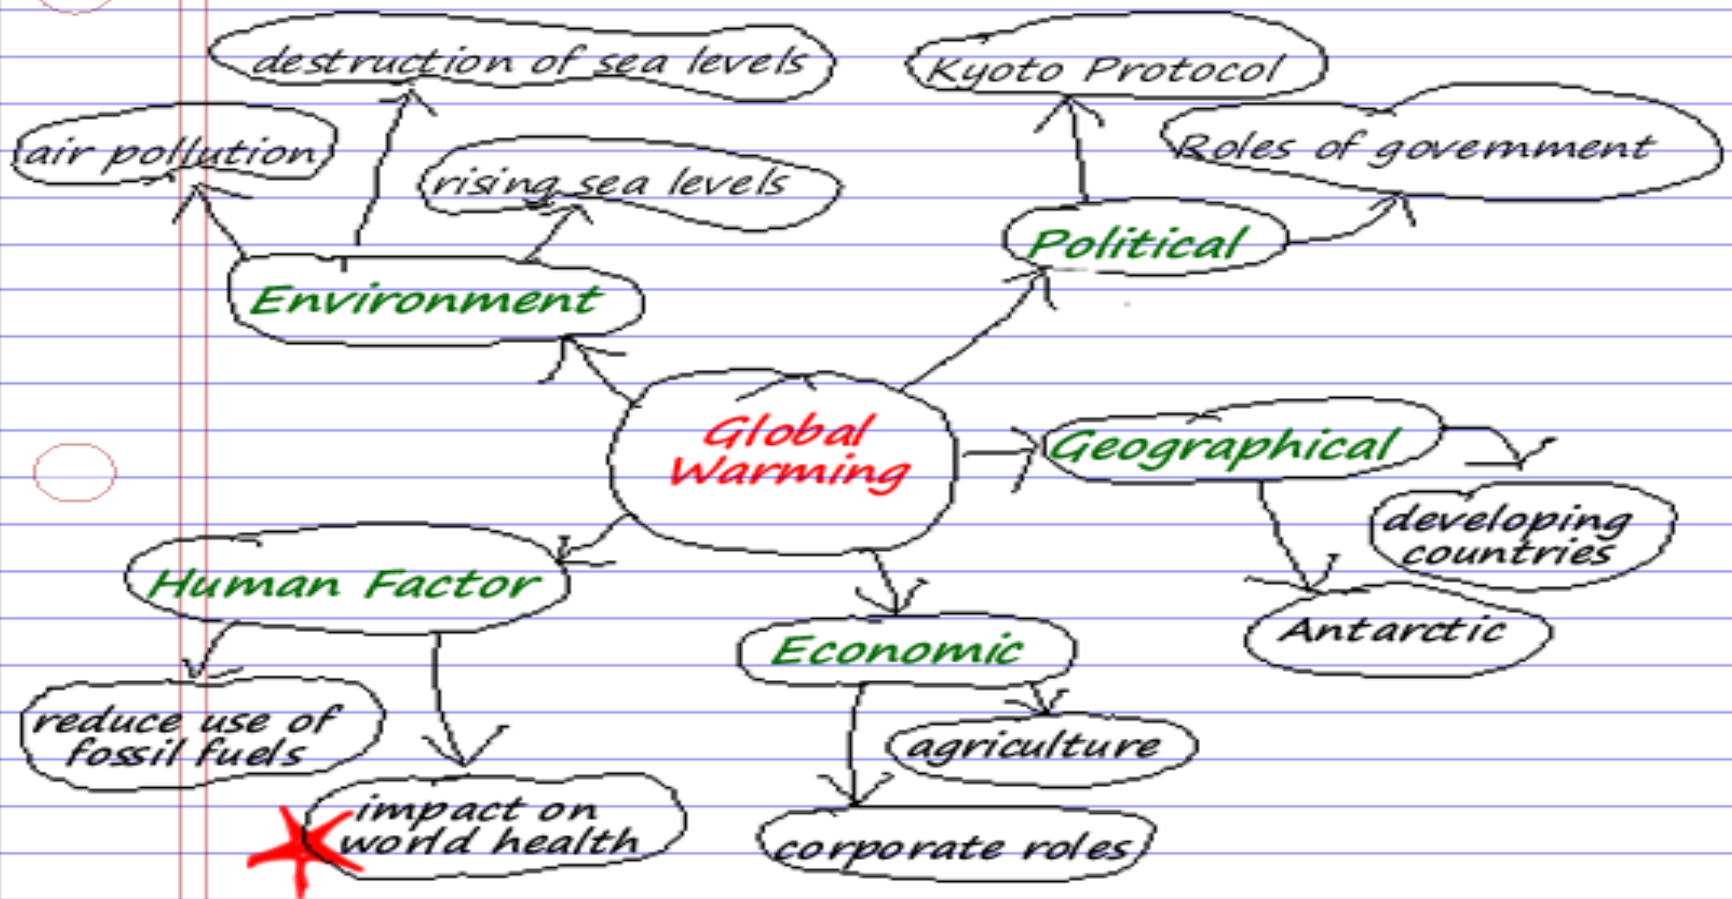 destruction of sea levels
Kyoto Protocol
air pollution
rising sea levels
Roles of government
Environment
Political
Global
Warming
Geographical
developing
countries
Human Factor
Antarctic
Economic
reduce use of
fossil fuels
agriculture
impact on
world health
corporate roles